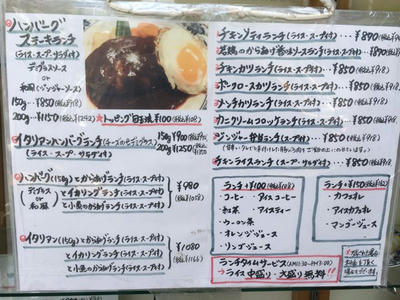 ハンバーグ
ステーキランチ
(ライス・スープ・サラダ付)
デミグラスソース
or
和風(ジンジャーソース)
150g…¥850(税込¥918)
200g…¥1150(税込¥1242)
★トッピング目玉焼¥100(税込¥108)
イタリアンハンバーグランチ(チーズのせデミグラス)
(ライス・スープ・サラダ付)
150g ¥900
200g ¥1250
ハンバーグ(150g)とから揚げランチ(ライス・スープ付)
(デミグラス or 和風)
とイカリングランチ(ライス・スープ付)
と小魚のから揚げランチ(ライス・スープ付)
¥980
イタリアン(150g)とから揚げランチ(ライス・スープ付)
とイカリングランチ(ライス・スープ付)
と小魚のから揚げランチ(ライス・スープ付)
¥1080
(税込¥1166)
チキンソティランチ(ライス・スープ付)…¥890
若鶏のから揚げ香味ソースランチ(ライス・スープ付)…¥850
チキンカツランチ(ライス・スープ付)…¥850(税込¥918)
ポークロースカツランチ(ライス・スープ付)…¥850(税込¥918)
メンチカツランチ(ライス・スープ付)…¥850(税込¥918)
カニクリームコロッケランチ(ライス・スープ付)…¥850(税込¥918)
ジンジャー焼肉ランチ(ライス・スープ付)…¥850(税込¥918)
チキンライスランチ(スープ・サラダ付)…¥850(税込¥918)
ランチ+¥100(税込¥108)
・コーヒー ・アイスコーヒー
・紅茶 ・アイスティー
・ウーロン茶
・オレンジジュース
・リンゴジュース
ランチ+¥150(税込¥162)
・カフェオレ
・アイスカフェオレ
・マンゴージュース
ランチタイムサービス(AM11:30~PM3:00)
→ライス中盛り・大盛り無料!!